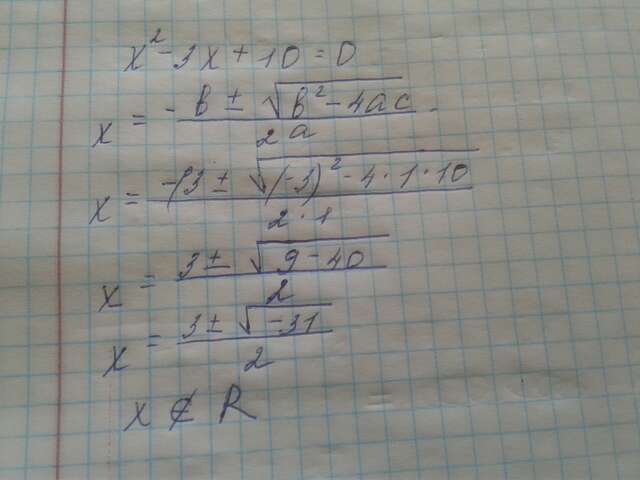 x² - 3x + 10 = 0
x = (-b ± √(b² - 4ac)) / 2a
x = (-(3 ± √((-3)² - 4·1·10)) / 2·1
x = (3 ± √(9 - 40)) / 2
x = (3 ± √(-31)) / 2
x ∉ R